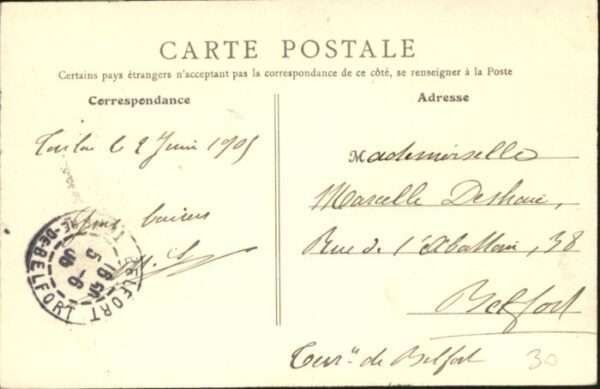 CARTE POSTALE
Certains pays étrangers n'acceptant pas la correspondance de ce côté, se renseigner à la Poste
Correspondance
Adresse
Toulon le 2 Juin 1905
Mademoiselle
Marcelle
Rue de l'Abattoir, 38
Belfort
Terr.re de Belfort
BELFORT
-DE BELFORT
30